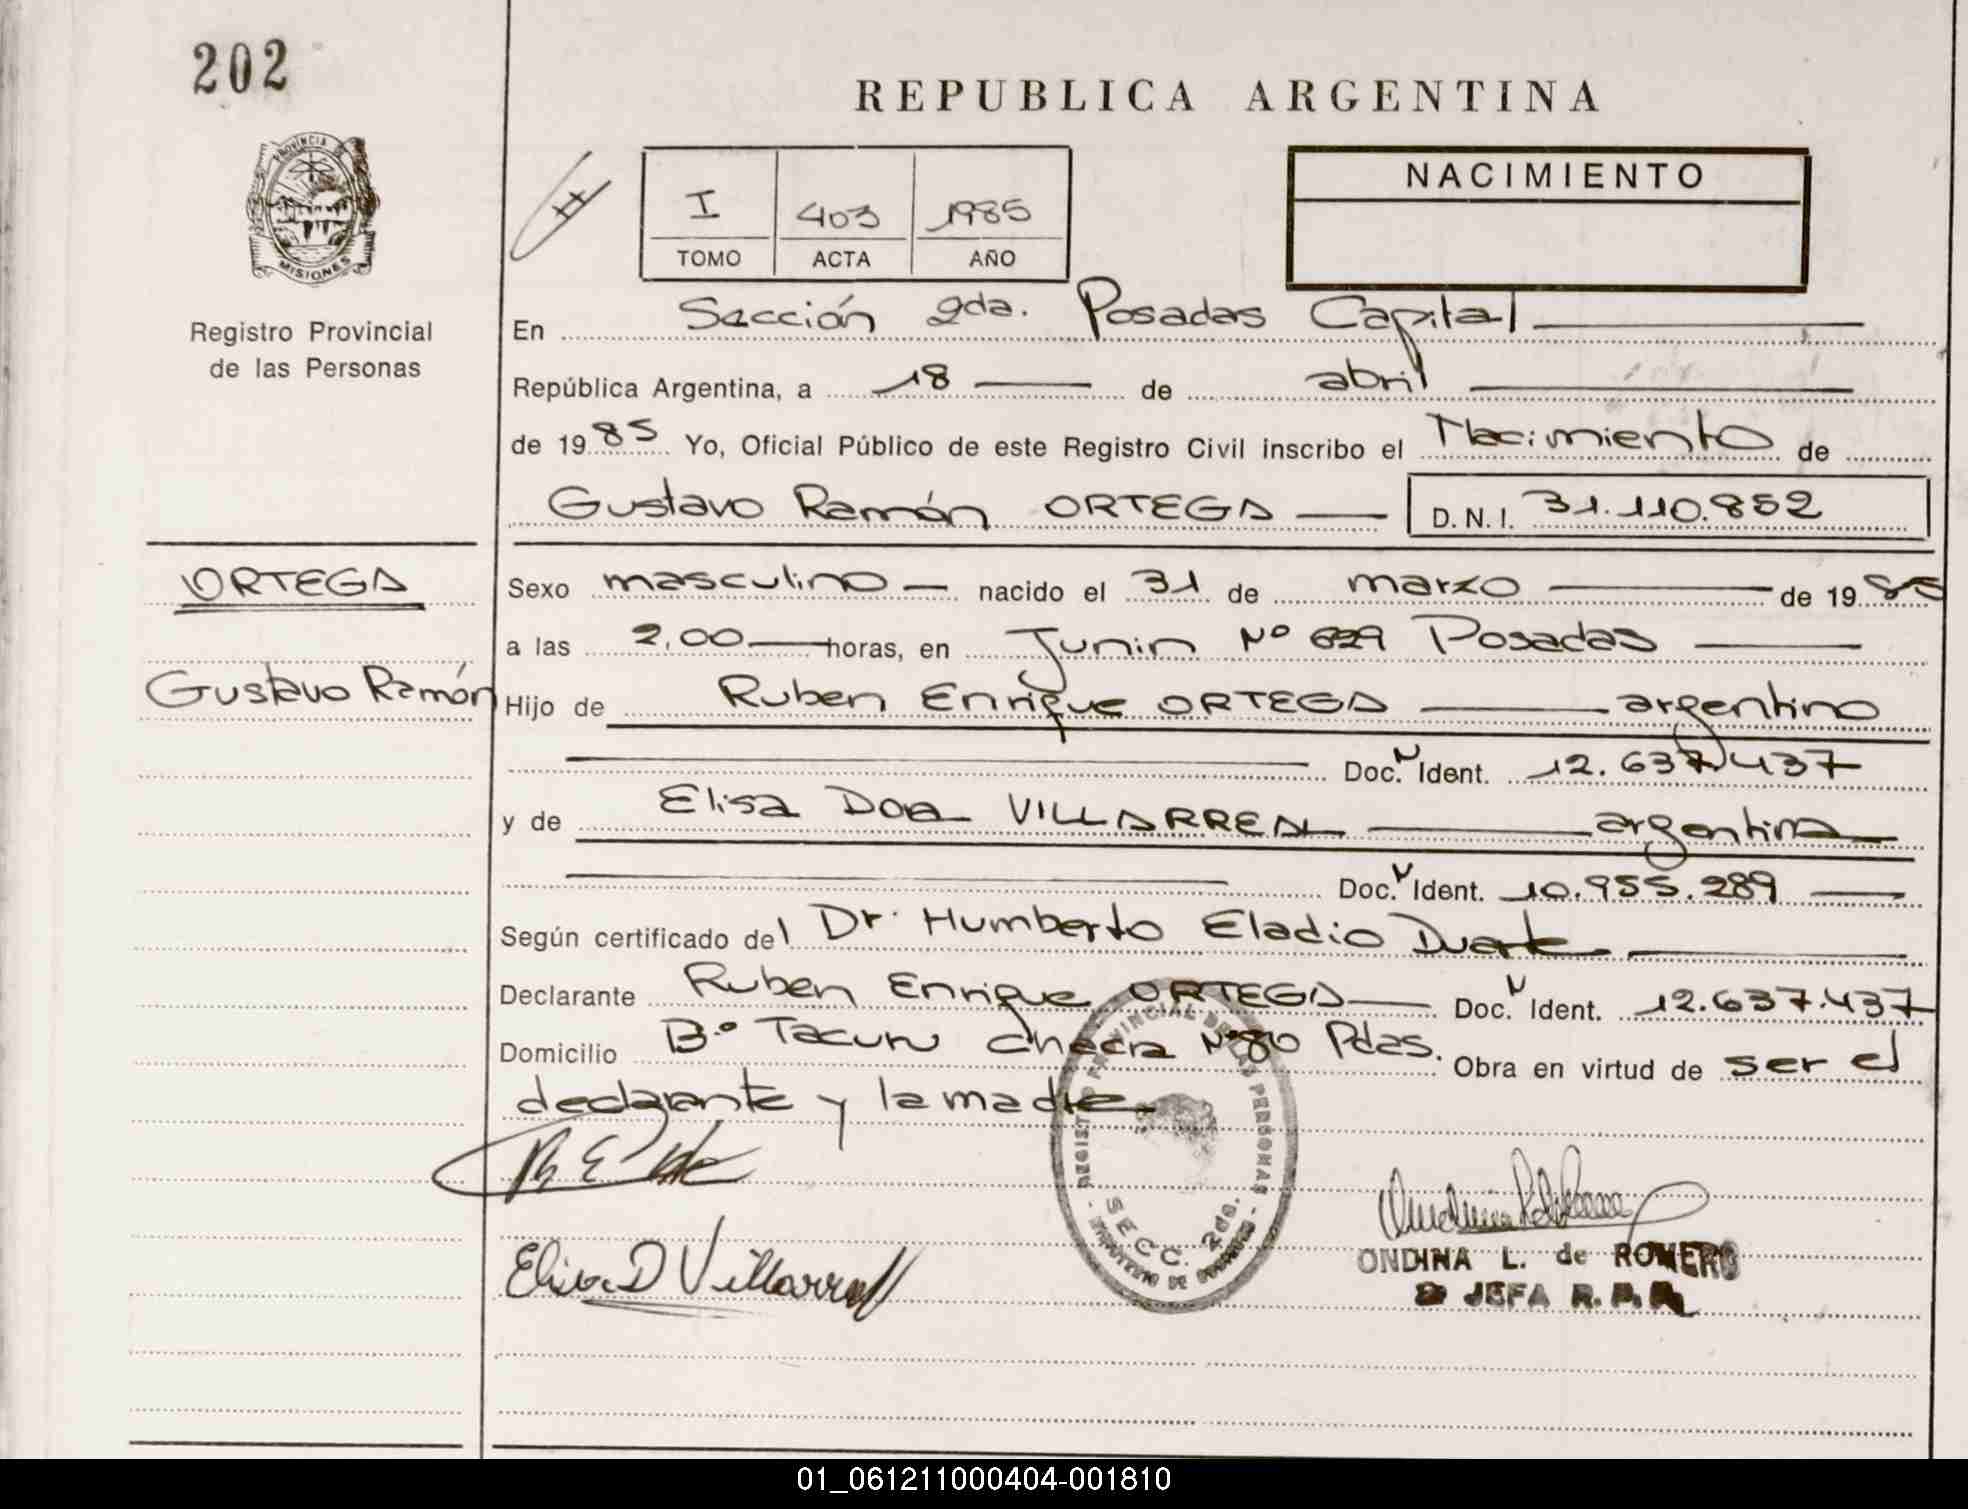 202
REPUBLICA ARGENTINA
PROVINCIA DE
MISIONES
Registro Provincial
de las Personas
I 403 1985
TOMO ACTA AÑO
NACIMIENTO
En Sección 2da. Posadas Capital
República Argentina, a 18 de abril
de 1985 Yo, Oficial Público de este Registro Civil inscribo el Nacimiento de
Gustavo Ramón ORTEGA D.N.I. 31.110.852
ORTEGA
Gustavo Ramón
Sexo masculino nacido el 31 de marzo de 1985
a las 2,00 horas, en Junin Nº 629 Posadas
Hijo de Ruben Enrique ORTEGA argentino
Doc. N Ident. 12.637.437
y de Elisa VILLARREAL argentina
Doc. N Ident. 10.955.289
Según certificado del Dr. Humberto Eladio Duarte
Declarante Ruben Enrique ORTEGA Doc. N Ident. 12.637.437
Domicilio Bº Tacuru chacra Nº 80 Pdas. Obra en virtud de ser el
declarante y la madre
REGISTRO PROVINCIAL DE LAS PERSONAS
SECC. 2da.
Elisa D Villarreal
ONDINA L. de ROMERO
JEFA R. P. P.
01_061211000404-001810